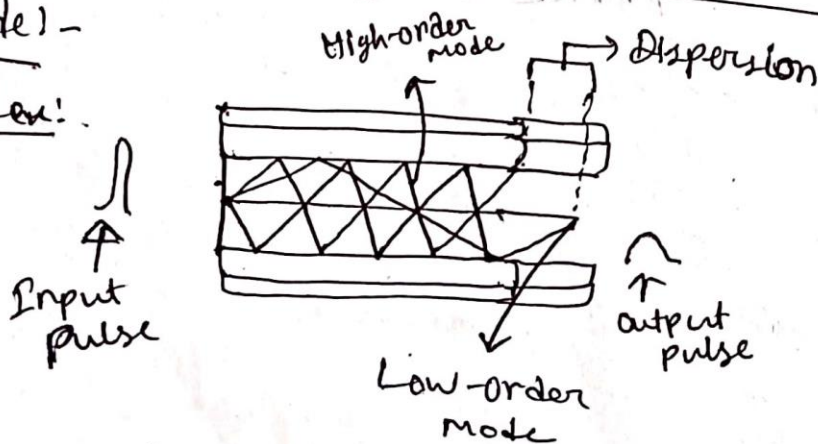 de) -
High-order
mode
Dispersion
er:
Input
pulse
output
pulse
Low-order
mode